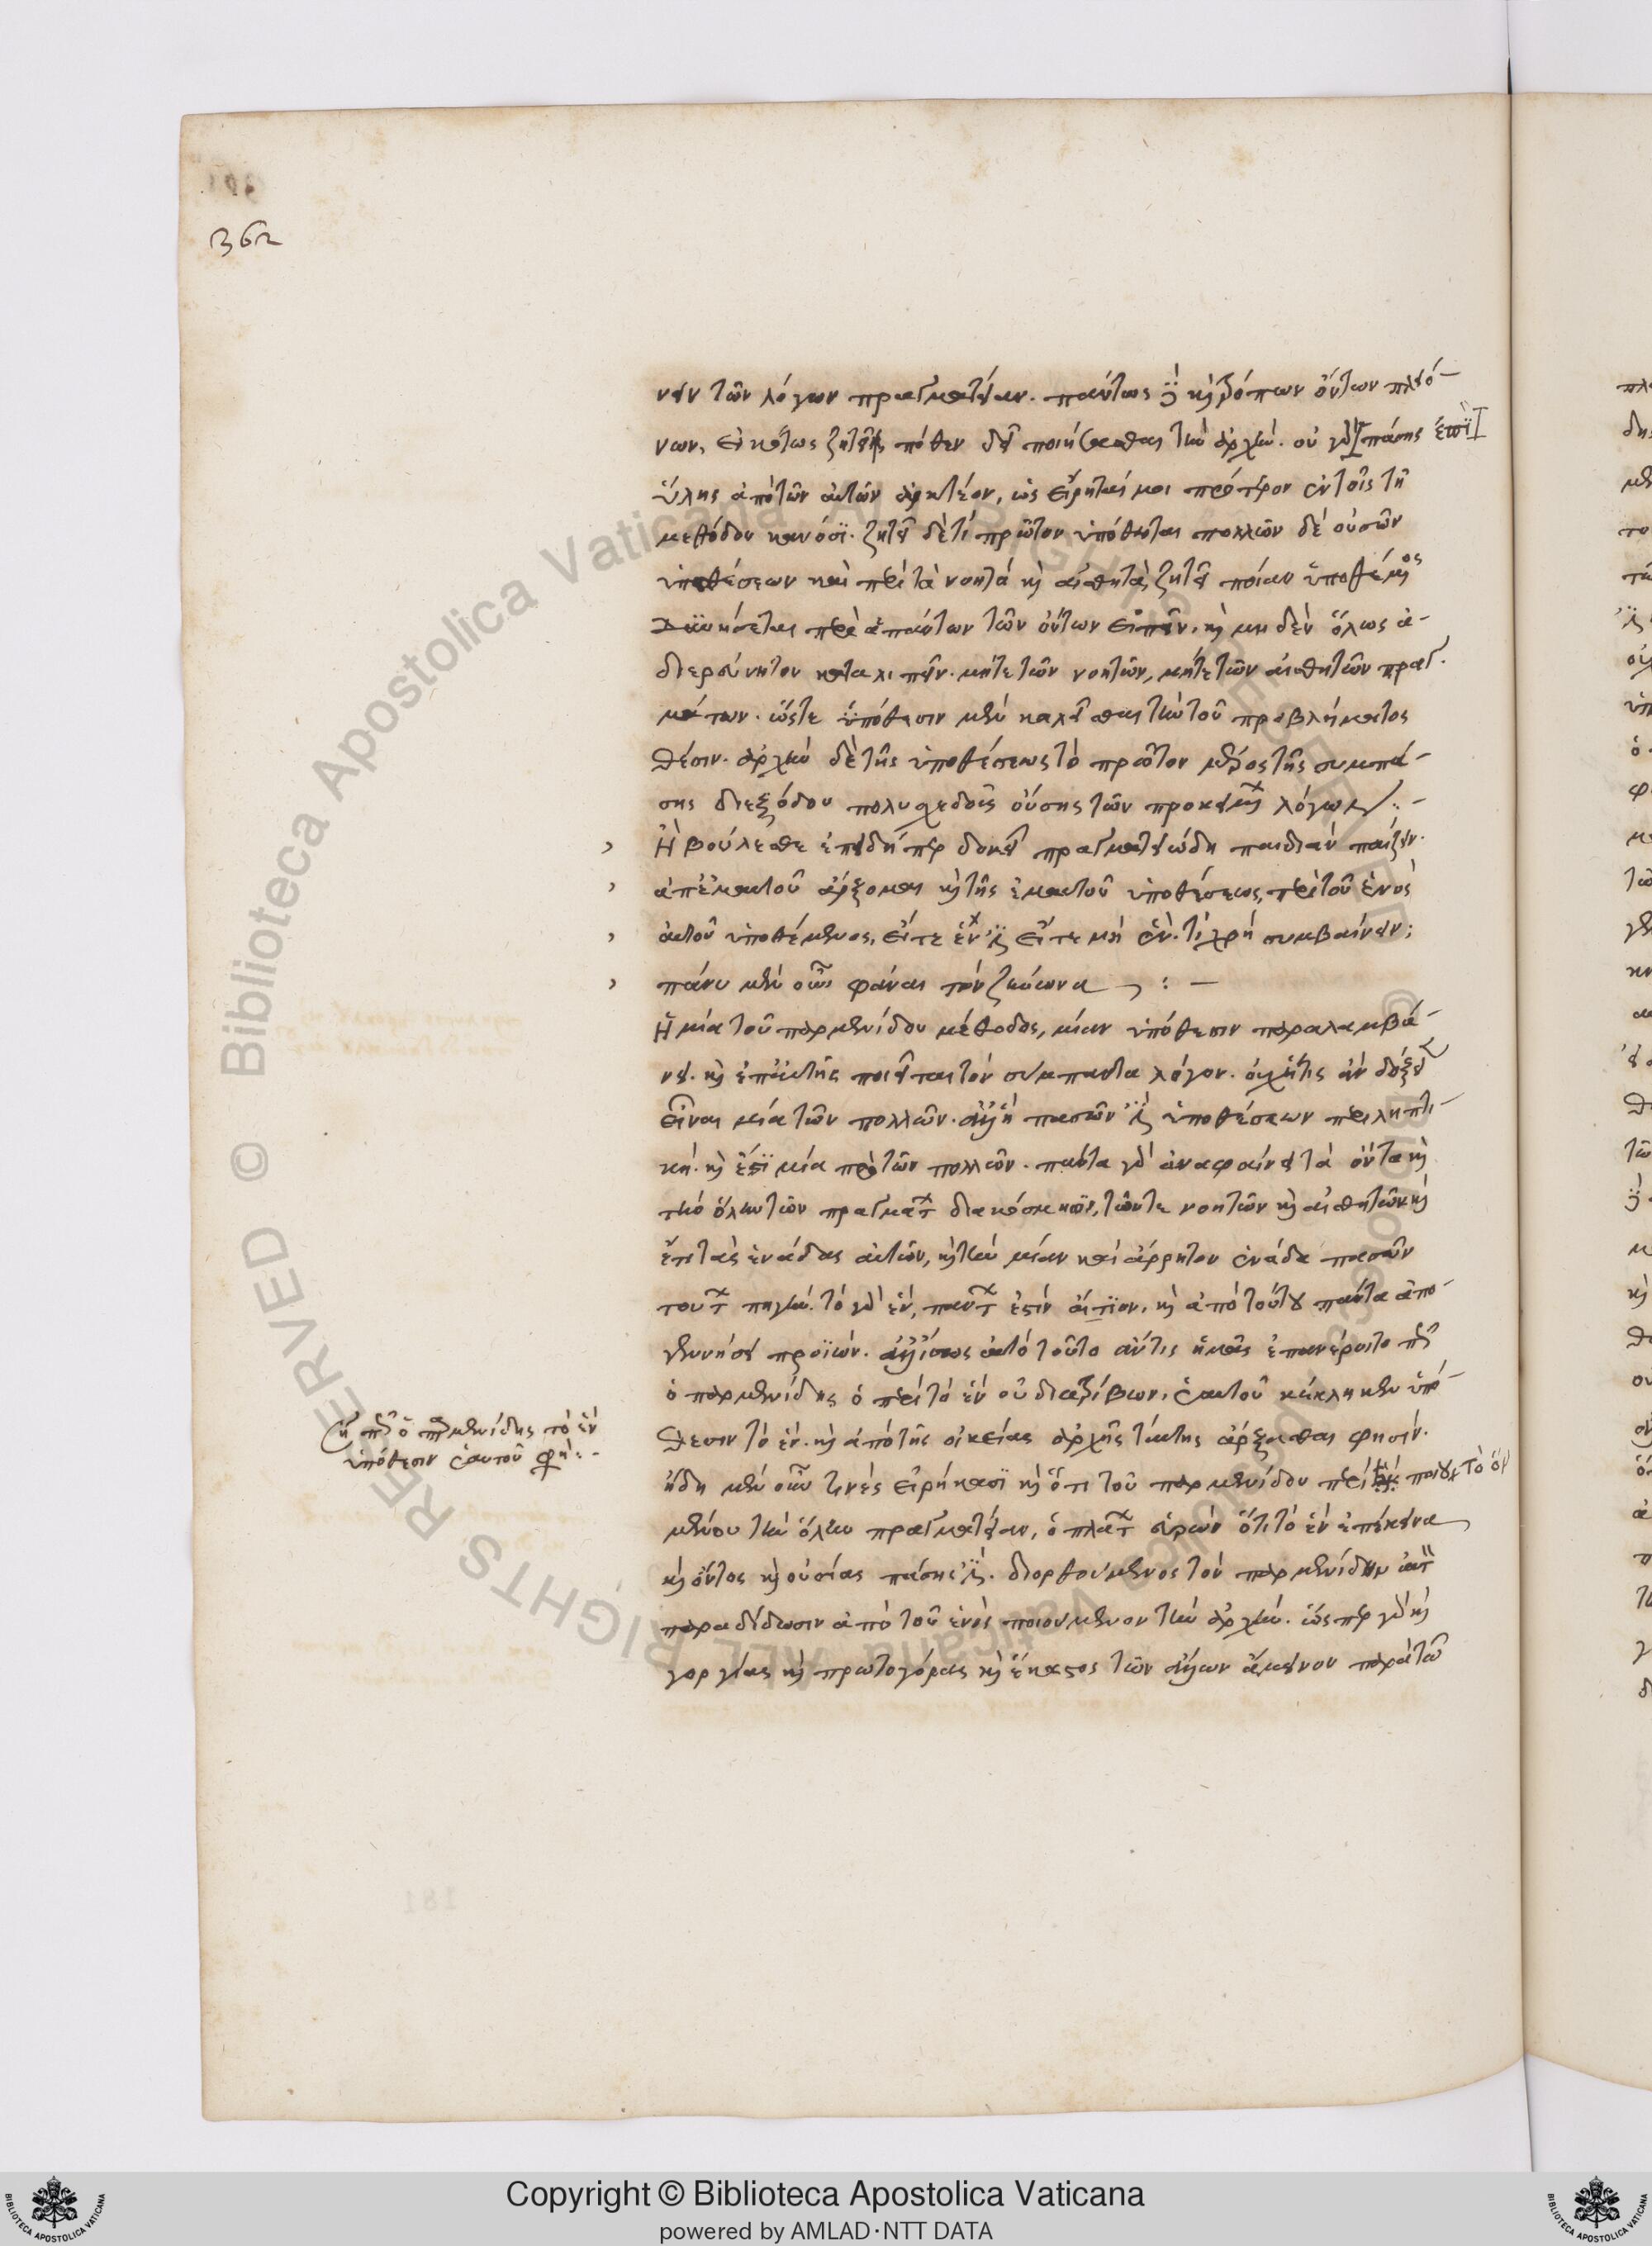 362
νειν τῶν λόγων πραγματείαν. πάντως δὲ καὶ τρόπων ὄντων πλειό-
νων, εἰκότως ζητεῖ πόθεν δεῖ ποιήσασθαι τὴν ἀρχήν. οὐ γὰρ ἐπὶ πάσης
ὕλης ἀπὸ τῶν αὐτῶν ἀρκτέον, ὡς εἴρηταί μοι πρότερον ἐν τοῖς τῆς
μεθόδου κανόσι. ζητεῖ δὲ τί πρῶτον ὑπόθηται πολλῶν δὲ οὐσῶν
ὑποθέσεων καὶ περὶ τὰ νοητὰ καὶ αἰσθητὰ, ζητεῖ ποίαν ὑποθέμενος
διϋκήσεται περὶ ἁπάντων τῶν ὄντων εἰπεῖν, καὶ μηδὲν ὅλως ἀ-
διερεύνητον καταλιπεῖν. μήτε τῶν νοητῶν, μήτε τῶν αἰσθητῶν πραγ-
μάτων. ὥστε ὑπόθεσιν μὲν καλεῖσθαι τὴν τοῦ προβλήματος
θέσιν. ἀρχὴν δὲ τῆς ὑποθέσεως τὸ πρῶτον μέρος τῆς συμπά-
σης διεξόδου πολυχεδοῦς οὔσης τῶν προκειμένων λόγων:-
Ἢ βούλεσθε ἐπειδήπερ δοκεῖ πραγματειώδη παιδιὰν παίζειν.
ἀπ' ἐμαυτοῦ ἄρξομαι καὶ τῆς ἐμαυτοῦ ὑποθέσεως, περὶ τοῦ ἑνὸς
αὐτοῦ ὑποθέμενος, εἴτε ἕν ἐστι εἴτε μὴ ἕν. τί χρὴ συμβαίνειν;
πάνυ μὲν οὖν φάναι τὸν ζήνωνα:-
Ἡ μία τοῦ παρμενίδου μέθοδος, μίαν ὑπόθεσιν παραλαμβά-
νει. καὶ ἐπ' αὐτῆς ποιεῖται τὸν σύμπαντα λόγον. οὐχ ἥτις ἂν δόξειεν
εἶναι μία τῶν πολλῶν. ἀλλ' ἡ πασῶν ἐστὶ ὑποθέσεων περιληπτι-
κὴ. καὶ ἔστι μία πρὸ τῶν πολλῶν. πάντα γὰρ ἀναφαίνει τὰ ὄντα καὶ
τὴν ὅλην τῶν πραγμάτων διακόσμησιν, τῶν τε νοητῶν καὶ αἰσθητῶν καὶ
ἔτι τὰς ἑνάδας αὐτῶν, καὶ τὴν μίαν καὶ ἄρρητον ἑνάδα πασῶν
τούτων πηγήν. τὸ γὰρ ἓν, πάντων ἐστὶν αἴτιον, καὶ ἀπὸ τούτου πάντα ἀπο-
γεννήσει προϊών. ἀλλ' ἴσως αὐτὸ τοῦτο ἄν τις ἡμᾶς ἐπανέροιτο πῶς
ὁ παρμενίδης ὁ περὶ τὸ ἓν οὐ διατρίβων, ἑαυτοῦ κέκληκεν ὑπό-
θεσιν τὸ ἓν. καὶ ἀπὸ τῆς οἰκείας ἀρχῆς ταύτης ἄρξασθαι φησίν.
ἤδη μὲν οὖν τινὲς εἰρήκασι καὶ ὅτι τοῦ παρμενίδου περὶ τὸ ὂν ποιου-
μένου τὴν ὅλην πραγματείαν, ὁ πλάτων εὑρὼν ὅτι τὸ ἓν ἐπέκεινα
καὶ ὄντος καὶ οὐσίας πάσης ἐστί. διορθούμενος τὸν παρμενίδην αὐτὸν
παραδίδωσιν ἀπὸ τοῦ ἑνὸς ποιούμενον τὴν ἀρχήν. ὥσπερ γὰρ καὶ
γοργίας καὶ πρωταγόρας καὶ ἕκαστος τῶν ἄλλων ἄμεινον παρὰ τῷ
πῶς ὁ παρμενίδης τὸ ἓν
ὑπόθεσιν ἑαυτοῦ φησι:-
Copyright © Biblioteca Apostolica Vaticana
powered by AMLAD·NTT DATA